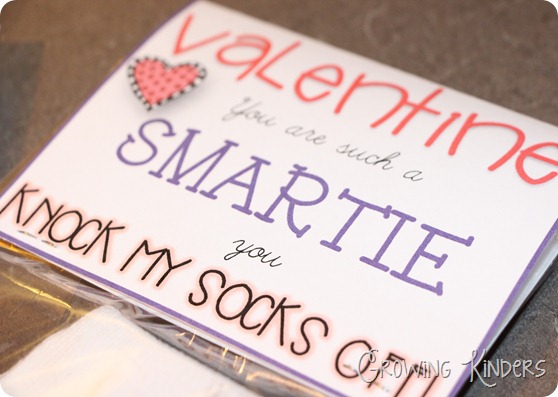 valentine
You are such a
SMARTIE
you
KNOCK MY SOCKS OFF!!
Growing Kinders